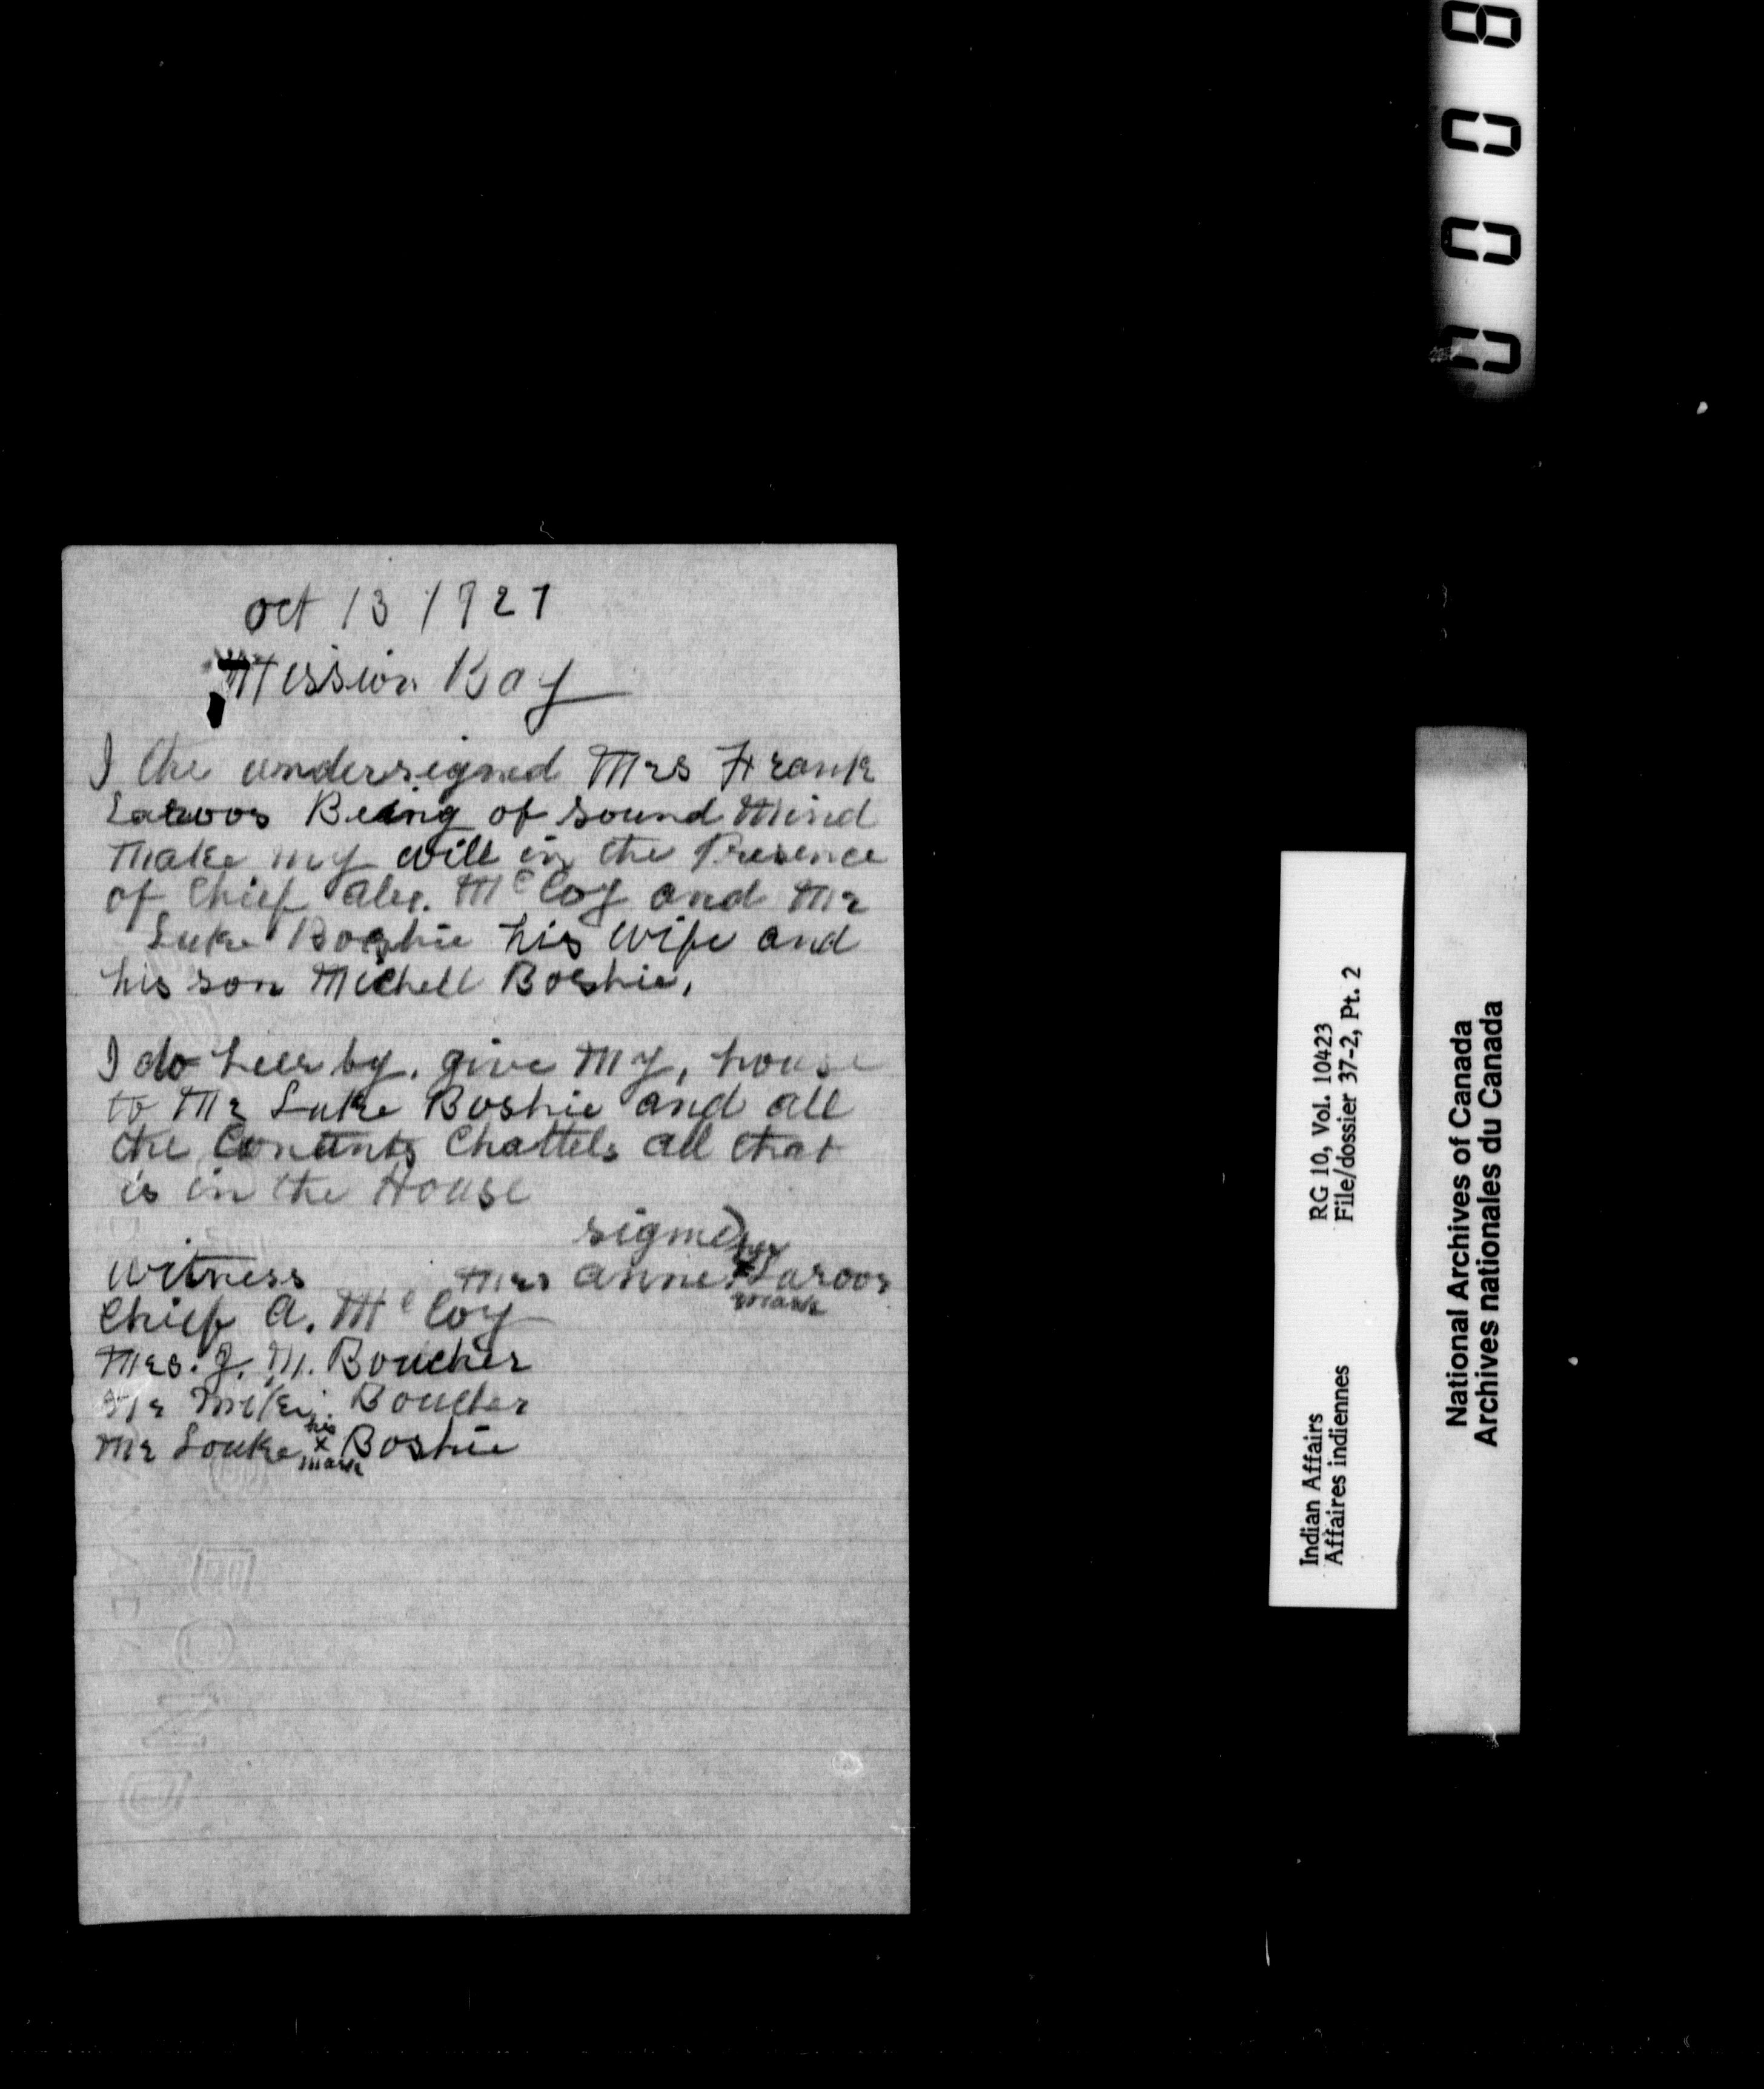 oct 13 1927
Mission Bay
I the undersigned Mrs Frank
Laroos Being of sound Mind
Make my will in the Presence
of Chief Alex. McCoy and Mr
Luke Boshie his wife and
his son Michell Boshie,
I do heerby, give My, house
to Mr Luke Boshie and all
the Contents Chattels all that
is in the House
signed
her
witness Mrs Anne x Laroos
mark
Chief A. McCoy
Mrs. J. M. Boucher
Mr Mike. Boucher
his
Mr Louke x Boshie
mark
0008
Indian Affairs RG 10, Vol. 10423
Affaires indiennes File/dossier 37-2, Pt. 2
National Archives of Canada
Archives nationales du Canada
BOND
CANADA